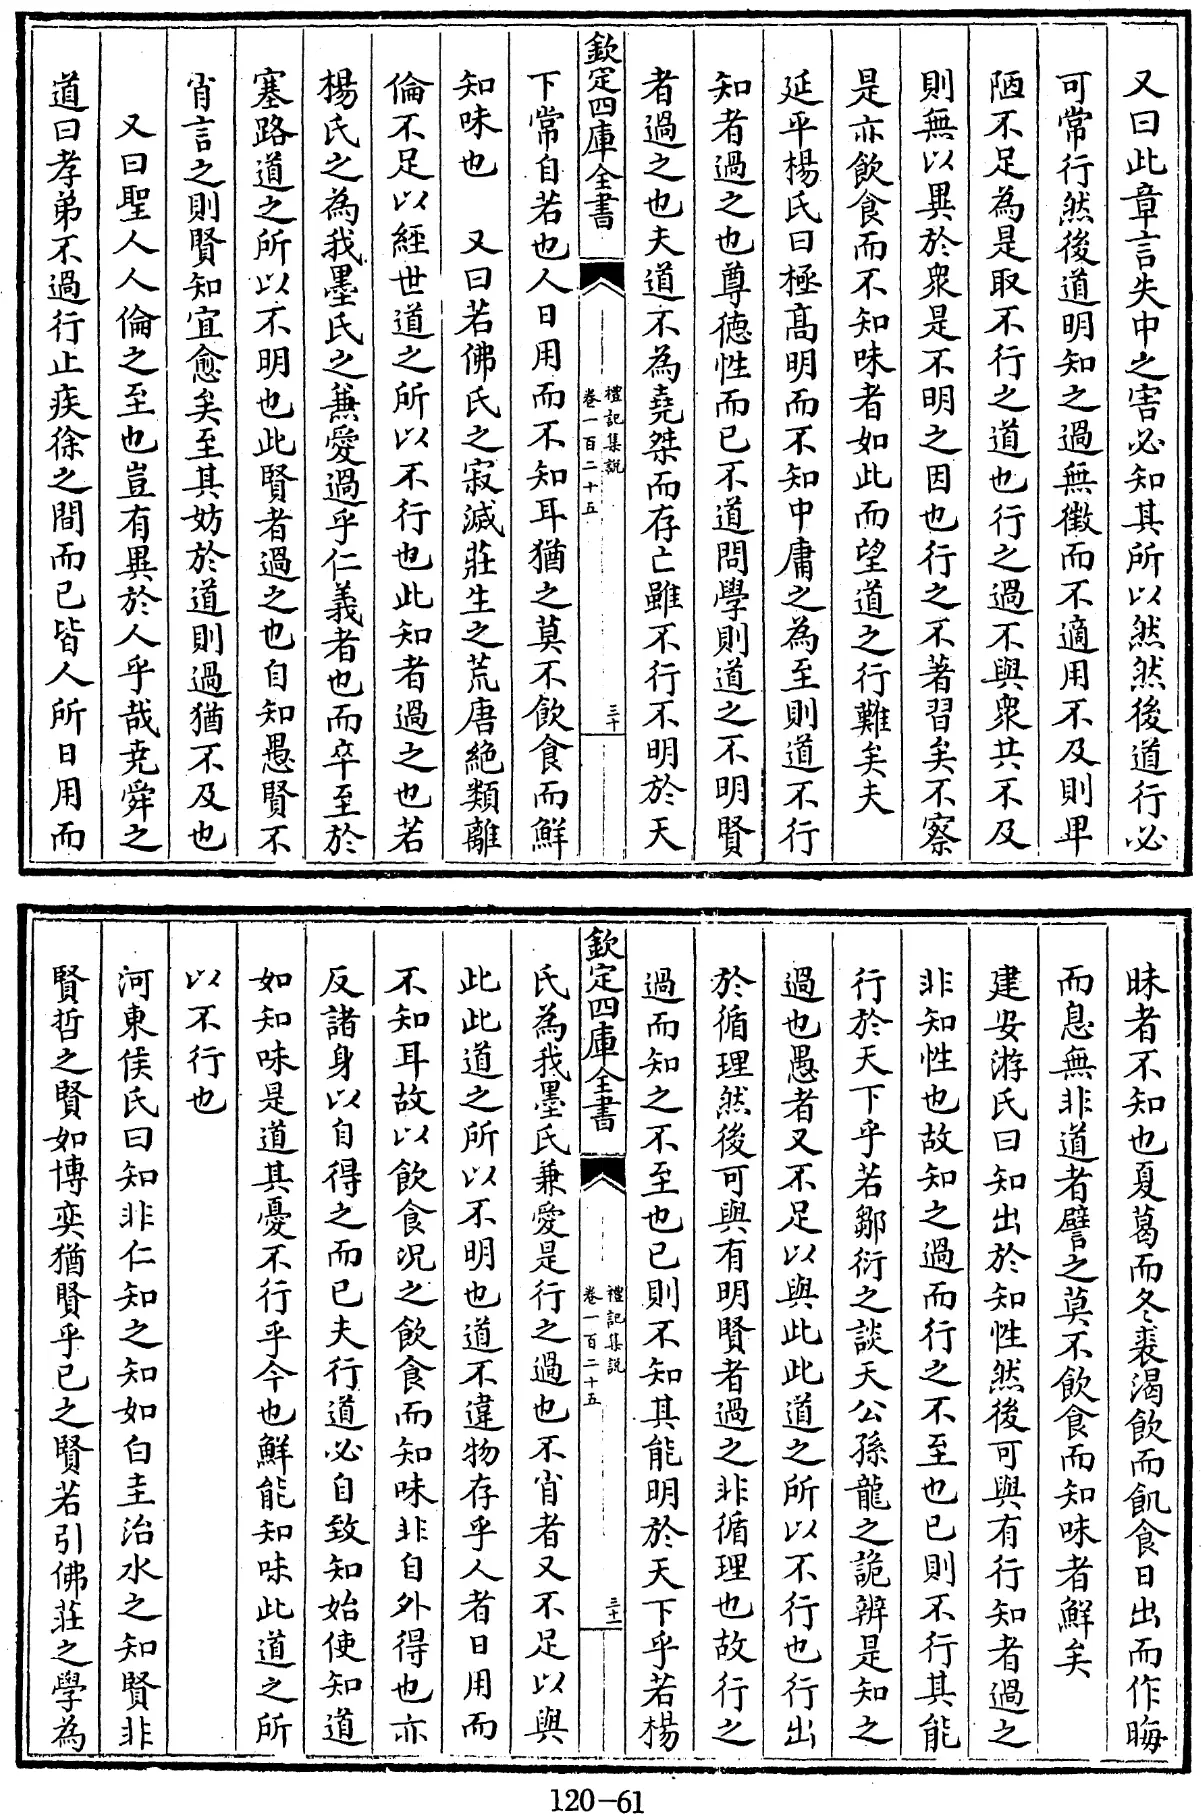 又曰此章言失中之害必知其所以然然後道行必
可常行然後道明知之過無徵而不適用不及則卑
陋不足為是取不行之道也行之過不與衆共不及
則無以異於衆是不明之因也行之不著習矣不察
是亦飲食而不知味者如此而望道之行難矣夫
延平楊氏曰極髙明而不知中庸之為至則道不行
知者過之也尊德性而已不道問學則道之不明賢
者過之也夫道不為堯桀而存亡雖不行不明於天
欽定四庫全書
禮記集說
卷一百二十五
三十
下常自若也人日用而不知耳猶之莫不飲食而鮮
知味也 又曰若佛氏之寂滅莊生之荒唐絶類離
倫不足以經世道之所以不行也此知者過之也若
楊氏之為我墨氏之兼愛過乎仁義者也而卒至於
塞路道之所以不明也此賢者過之也自知愚賢不
肖言之則賢知宜愈矣至其妨於道則過猶不及也
又曰聖人人倫之至也豈有異於人乎哉堯舜之
道曰孝弟不過行止疾徐之間而已皆人所日用而
昧者不知也夏葛而冬裘渴飲而飢食日出而作晦
而息無非道者譬之莫不飲食而知味者鮮矣
建安游氏曰知出於知性然後可與有行知者過之
非知性也故知之過而行之不至也已則不行其能
行於天下乎若鄒衍之談天公孫龍之詭辨是知之
過也愚者又不足以與此此道之所以不行也行出
於循理然後可與有明賢者過之非循理也故行之
過而知之不至也已則不知其能明於天下乎若楊
欽定四庫全書
禮記集說
卷一百二十五
三十一
氏為我墨氏兼愛是行之過也不肖者又不足以與
此此道之所以不明也道不違物存乎人者日用而
不知耳故以飲食况之飲食而知味非自外得也亦
反諸身以自得之而已夫行道必自致知始使知道
如知味是道其憂不行乎今也鮮能知味此道之所
以不行也
河東侯氏曰知非仁知之知如白圭治水之知賢非
賢哲之賢如博奕猶賢乎已之賢若引佛莊之學為
120-61